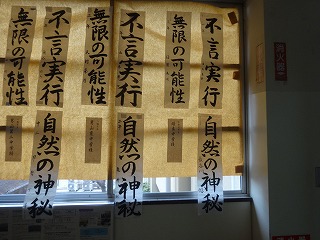 不言実行
無限の可能性
不言実行
無限の可能性
不言実行
無限の可能性
自然の神秘
自然の神秘
自然の神秘
消火器